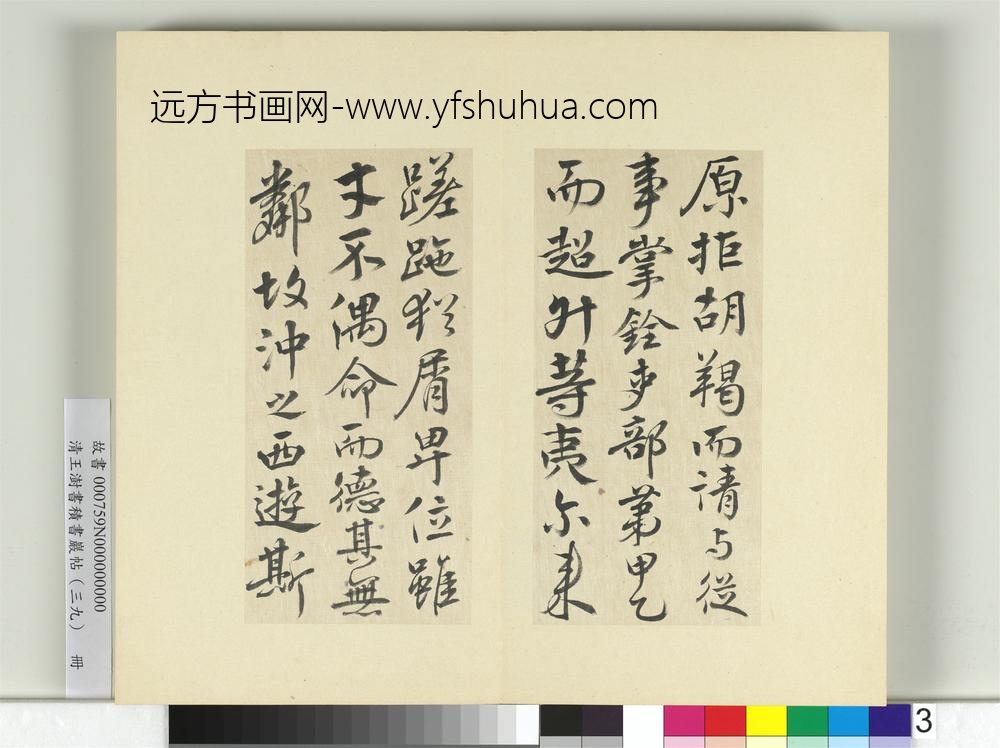 远方书画网-www.yfshuhua.com
原拒胡羯而請与從
事掌銓吏部第甲乙
而超升等夷尔来
蹉跎猶屑卑位雖
才不偶命而德其無
鄰故沖之西遊斯
故書 000759N000000000
清王澍書積書巖帖(三九) 冊
3